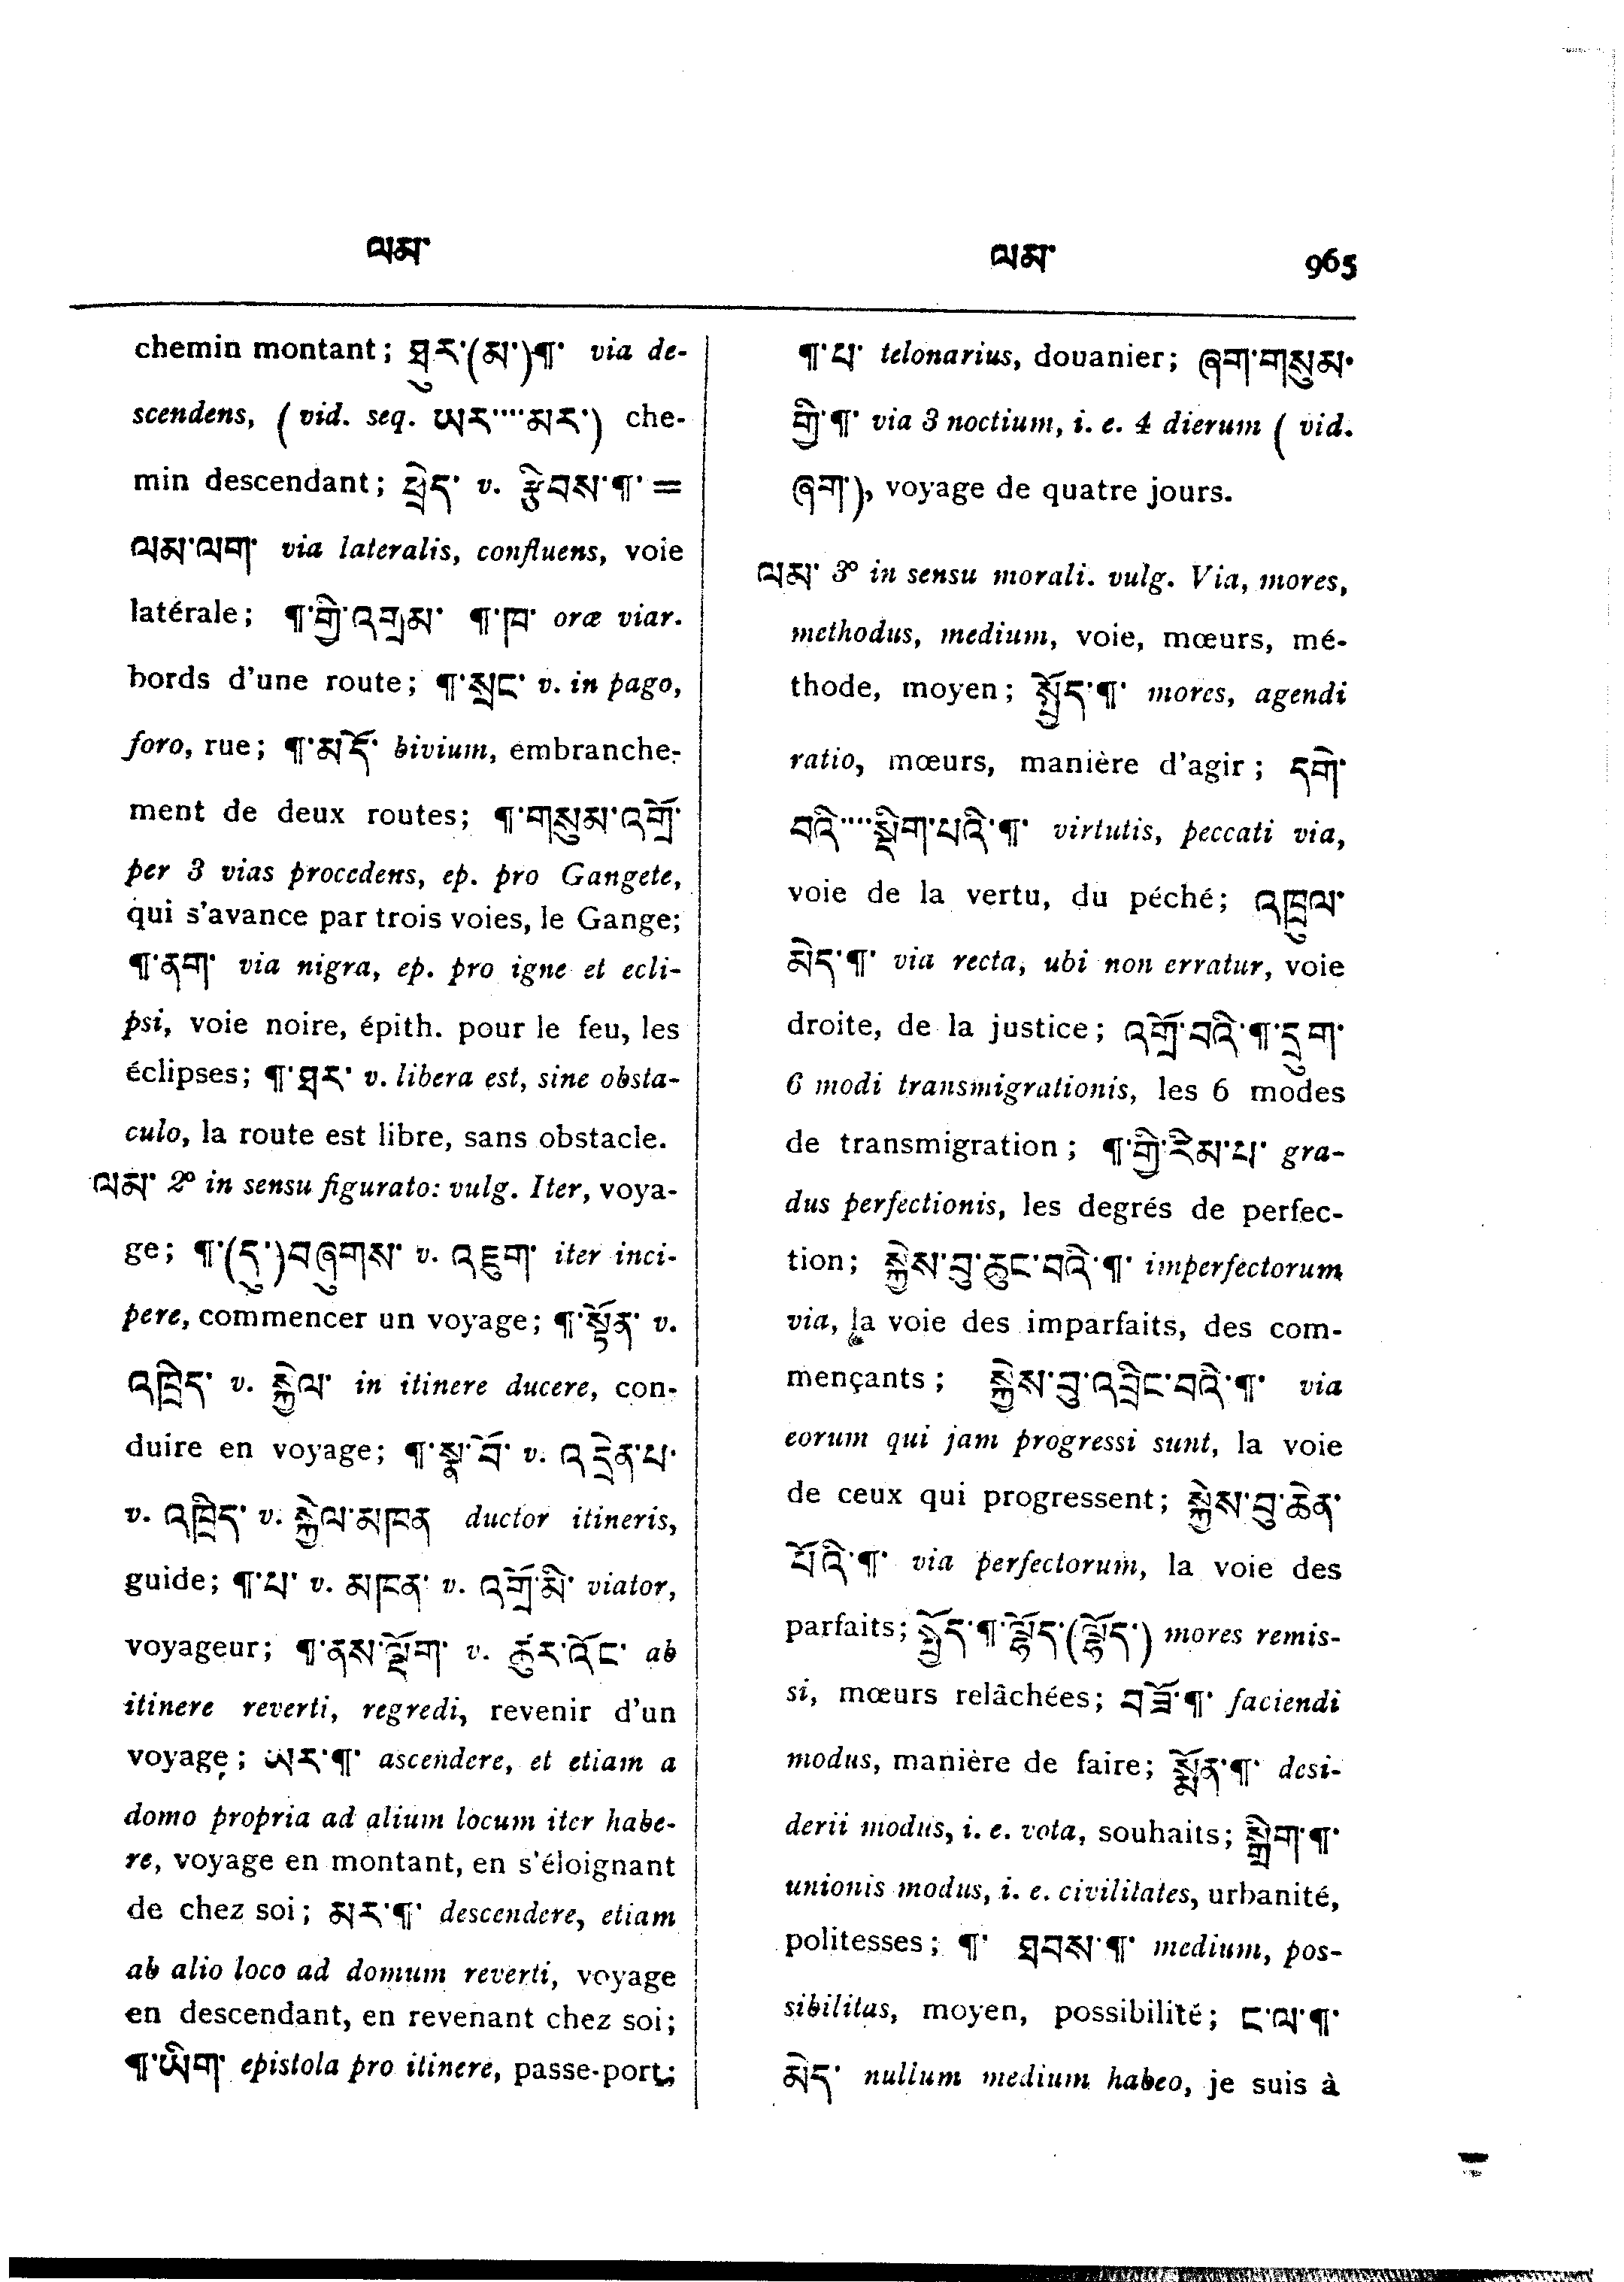 ལམ་
ལམ་ 965
chemin montant; ཐུར་(མ་)¶་ via de-
scendens, (vid. seq. ཡར་····མར་) che-
min descendant; ཕྲེད་ v. རྩིབས་¶་ =
ལམ་ལག་ via lateralis, confluens, voie
latérale; ¶་གྱི་འགྲམ་ ¶་ཁ་ oræ viar.
bords d'une route; ¶་སྲང་ v. in pago,
foro, rue; ¶་མདོ་ bivium, embranche-
ment de deux routes; ¶་གསུམ་འགྲོ་
per 3 vias procedens, ep. pro Gangete,
qui s'avance par trois voies, le Gange;
¶་ནག་ via nigra, ep. pro igne et ecli-
psi, voie noire, épith. pour le feu, les
éclipses; ¶་ཐར་ v. libera est, sine obsta-
culo, la route est libre, sans obstacle.
ལམ་ 2º in sensu figurato: vulg. Iter, voya-
ge; ¶་(དུ་)བཞུགས་ v. འཇུག་ iter inci-
pere, commencer un voyage; ¶་སྟོན་ v.
འཁྲིད་ v. སྐྱེལ་ in itinere ducere, con-
duire en voyage; ¶་སྣ་བོ་ v. འདྲེན་པ་
v. འཁྲིད་ v. སྐྱེལ་མཁན ductor itineris,
guide; ¶་པ་ v. མཁན་ v. འགྲོ་མི་ viator,
voyageur; ¶་ནས་ལྡོག་ v. ཚུར་འོང་ ab
itinere reverti, regredi, revenir d'un
voyage; ཡར་¶་ ascendere, et etiam a
domo propria ad alium locum iter habe-
re, voyage en montant, en s'éloignant
de chez soi; མར་¶་ descendere, etiam
ab alio loco ad domum reverti, voyage
en descendant, en revenant chez soi;
¶་ཡིག་ epistola pro itinere, passe-port;
¶་པ་ telonarius, douanier; ཞག་གསུམ་
གྱི་¶་ via 3 noctium, i. e. 4 dierum (vid.
ཞག་), voyage de quatre jours.
ལམ་ 3º in sensu morali. vulg. Via, mores,
methodus, medium, voie, mœurs, mé-
thode, moyen; སྤྱོད་¶་ mores, agendi
ratio, mœurs, manière d'agir; དགེ་
བའི་····སྡིག་པའི་¶་ virtutis, peccati via,
voie de la vertu, du péché; འཁྲུལ་
མེད་¶་ via recta, ubi non erratur, voie
droite, de la justice; འགྲོ་བའི་¶་དྲུག་
6 modi transmigrationis, les 6 modes
de transmigration; ¶་གྱི་རིམ་པ་ gra-
dus perfectionis, les degrés de perfec-
tion; སྐྱེས་བུ་ཆུང་བའི་¶་ imperfectorum
via, la voie des imparfaits, des com-
mençants; སྐྱེས་བུ་འབྲིང་བའི་¶་ via
eorum qui jam progressi sunt, la voie
de ceux qui progressent; སྐྱེས་བུ་ཆེན་
པོའི་¶་ via perfectorum, la voie des
parfaits; སྤྱོད་¶་ལྷོད་(ལྷོད་) mores remis-
si, mœurs relâchées; བཟོ་¶་ faciendi
modus, manière de faire; སྨོན་¶་ desi-
derii modus, i. e. vota, souhaits; སྒྲིག་¶་
unionis modus, i. e. civilitates, urbanité,
politesses; ¶་ ཐབས་¶་ medium, pos-
sibilitas, moyen, possibilité; ང་ལ་¶་
མེད་ nullum medium habeo, je suis à